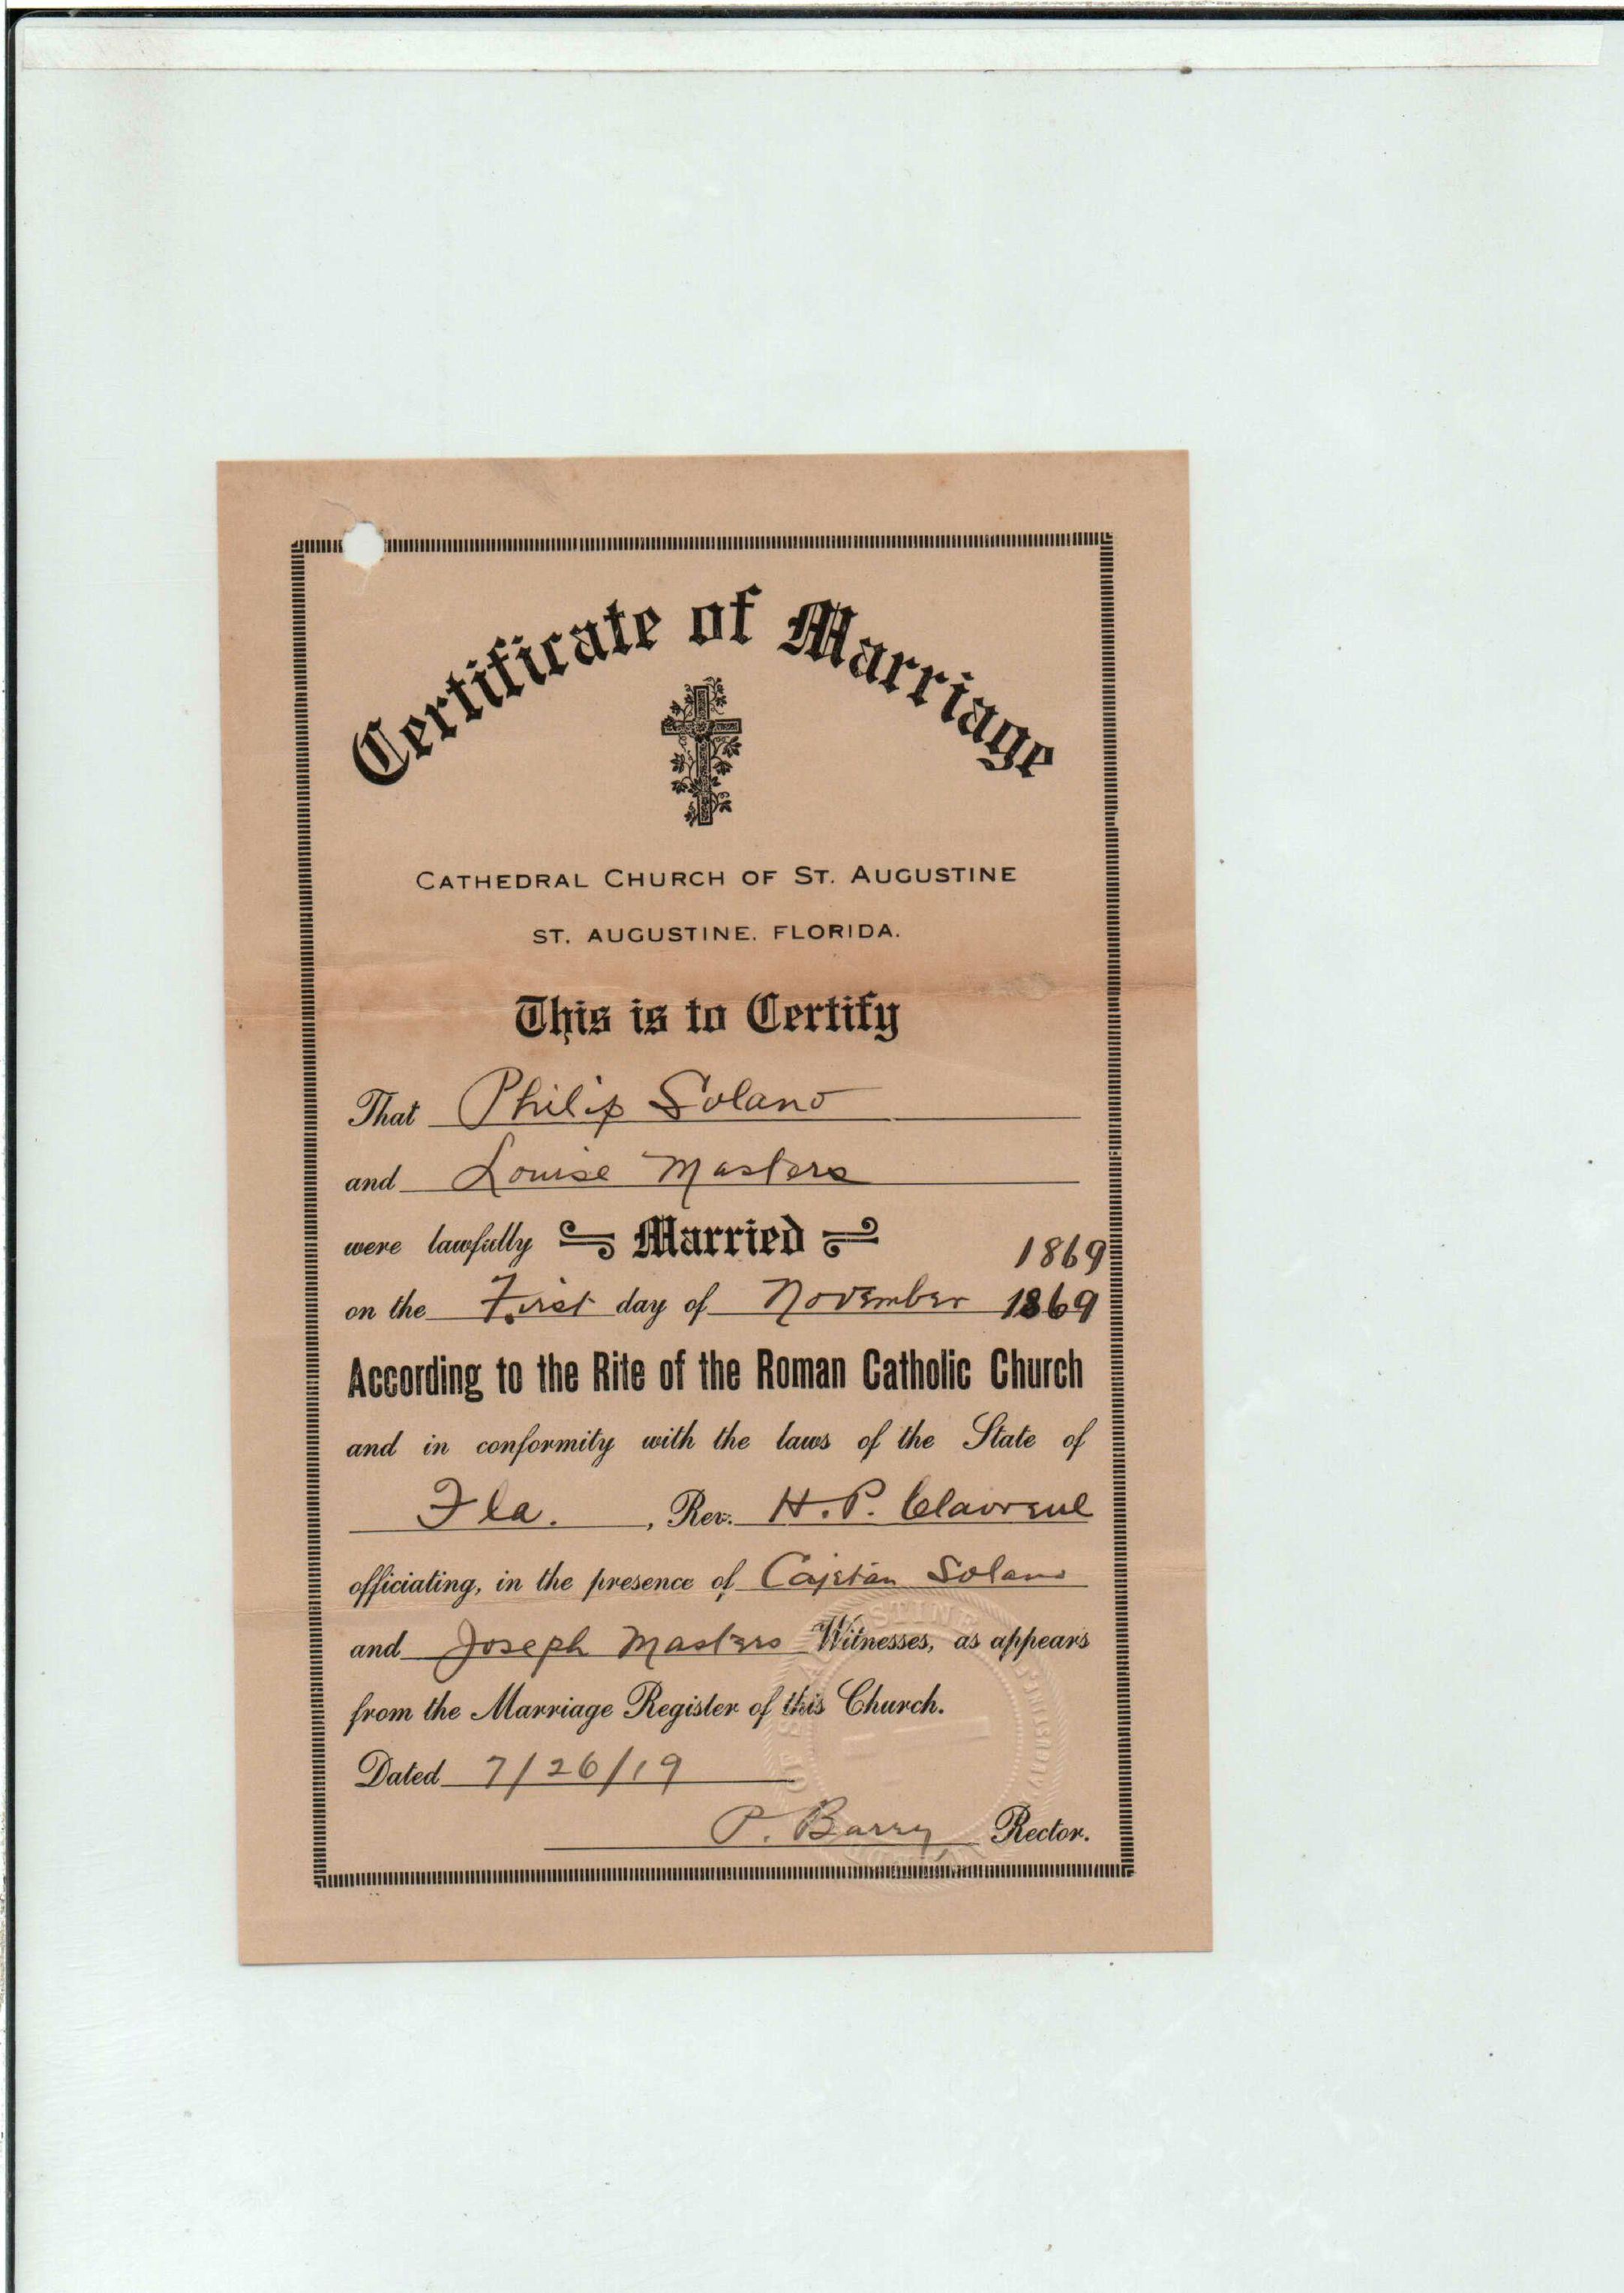 Certificate of Marriage
CATHEDRAL CHURCH OF ST. AUGUSTINE
ST. AUGUSTINE, FLORIDA.
This is to Certify
That Philip Solano
and Louise Masters
were lawfully Married 1869
on the First day of November 1869
According to the Rite of the Roman Catholic Church
and in conformity with the laws of the State of
Fla. , Rev. H. P. Clavreul
officiating, in the presence of Cajetan Solano
and Joseph Masters Witnesses, as appears
from the Marriage Register of this Church.
Dated 7/26/19
P. Barry, Rector.